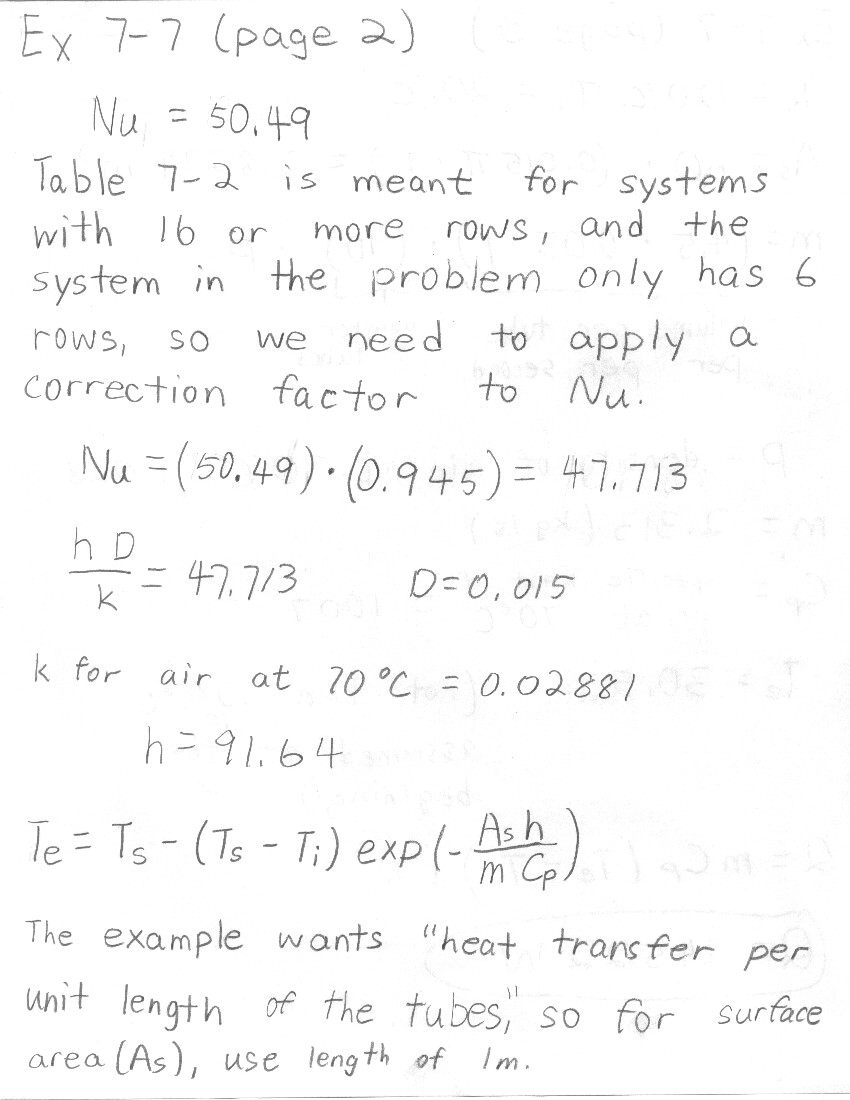 Ex 7-7 (page 2)
Nu = 50.49
Table 7-2 is meant for systems
with 16 or more rows, and the
system in the problem only has 6
rows, so we need to apply a
correction factor to Nu.
Nu = (50.49) · (0.945) = 47.713
h D / k = 47.713    D = 0.015
k for air at 70 °C = 0.02881
h = 91.64
Te = Ts - (Ts - Ti) exp(- As h / m Cp)
The example wants "heat transfer per
unit length of the tubes," so for surface
area (As), use length of 1m.